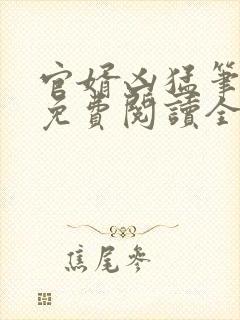 官婿凶猛筆
免費閱讀全
焦尾參